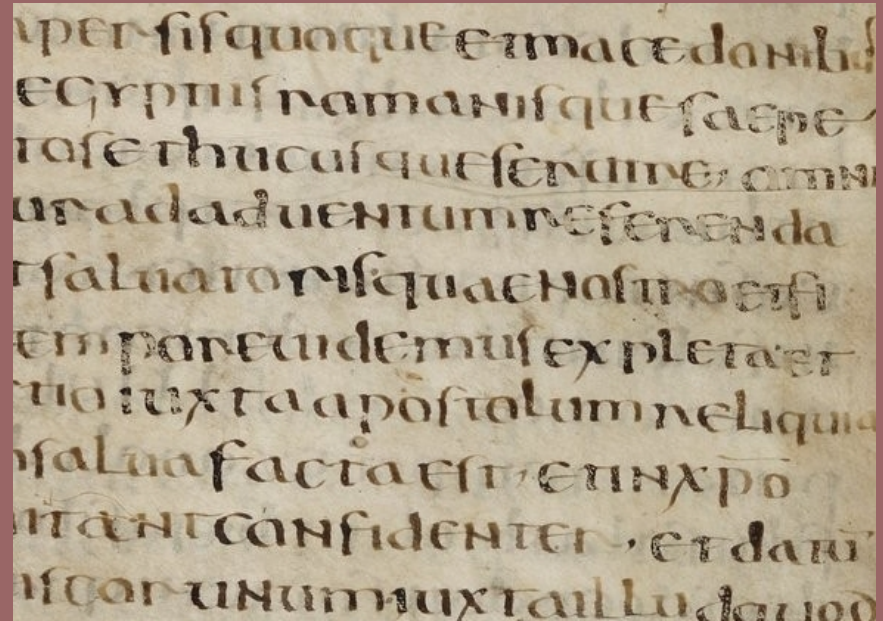 per sisquoque et macedonibus
egyptiis romanisque saepe
tos et hucusque seruire, omni
ura ad aduentum referenda
t saluatoris quae nostro et si
tempore uidemus expleta et
tio iuxta apostolum reliquia
salua facta est, et in xp̄o
itant confidenter, et daui
iscor unum iuxta illud quod